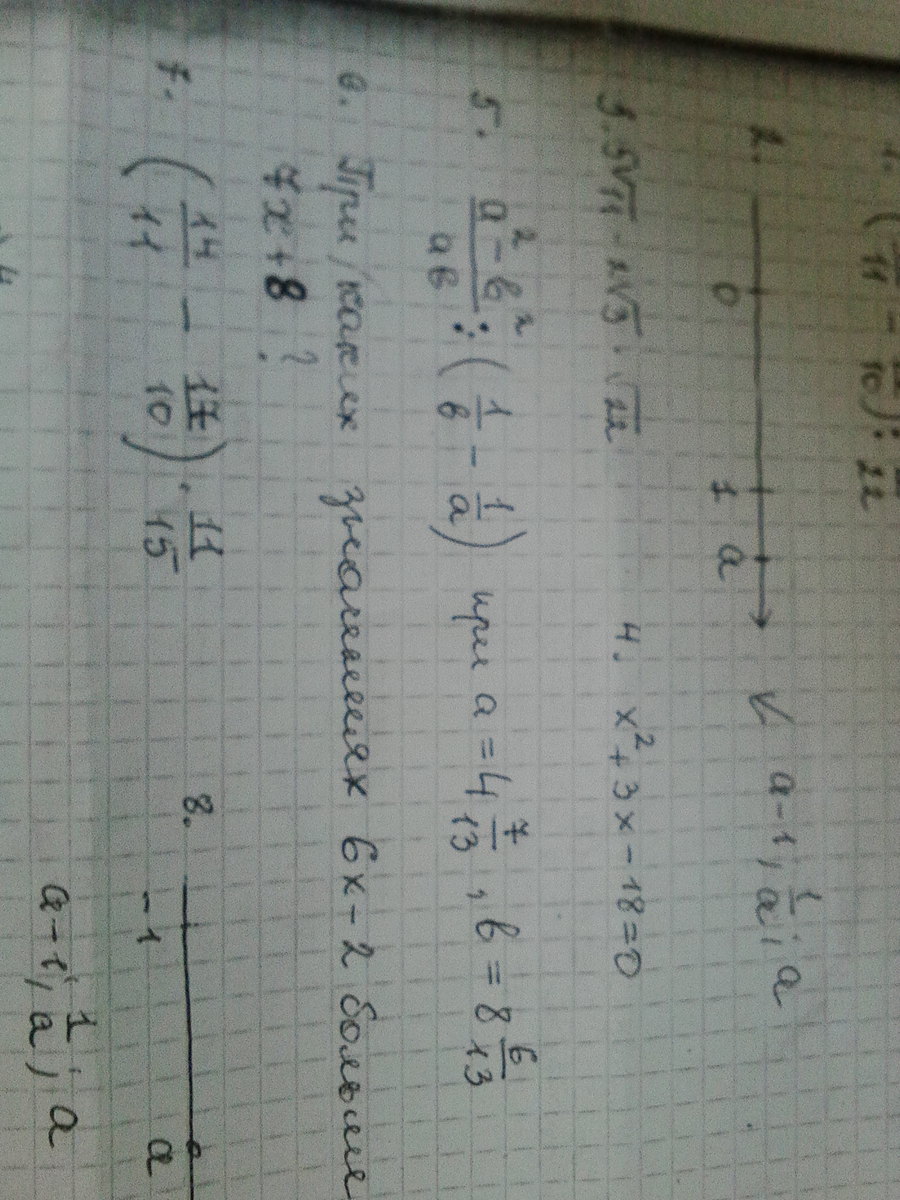 1. ( /11 - /10) : /22
2. 0 1 a a-1, 1/a; a
3. 5√11 - 2√5 · √22 4. x² + 3x - 18 = 0
5. a² - b² / ab : (1/b - 1/a) при a = 4 7/13, b = 8 6/13
6. При каких значениях 6x - 2 больше
7x + 8 ?
7. (14/11 - 17/10) · 11/15 8. -1 a
a-1; 1/a; a